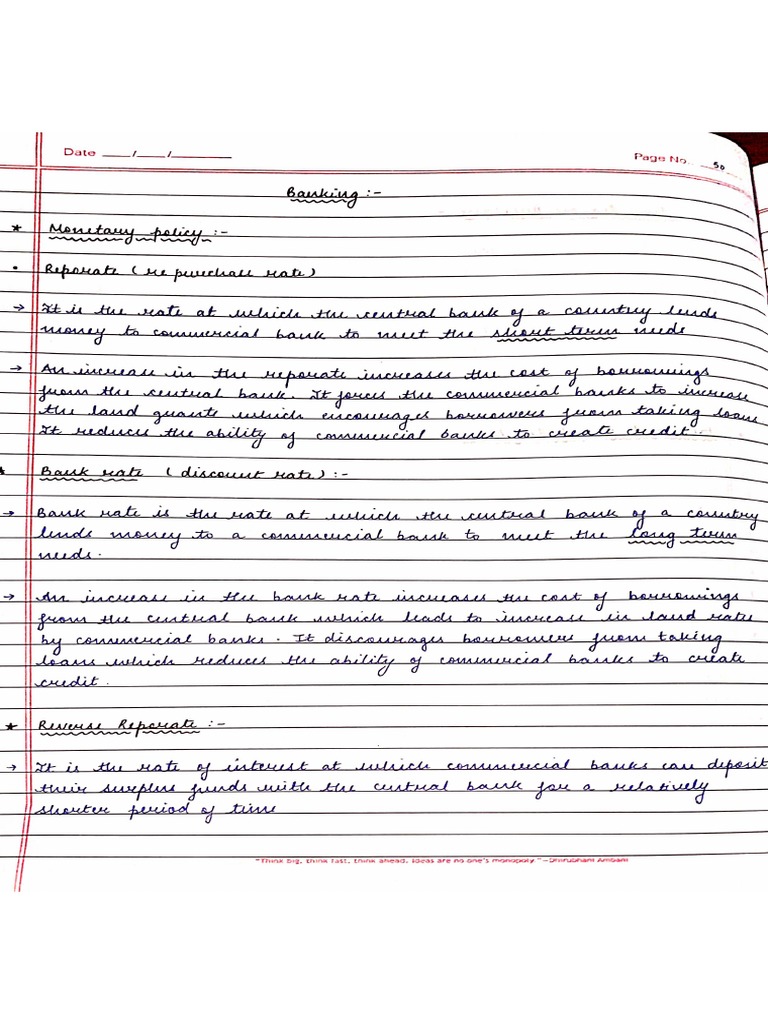 Date ___/___/______
Page No. 50
Banking :-
* Monetary policy :-
• Reporate ( re purchase rate )
→ It is the rate at which the central bank of a country lends
money to commercial bank to meet the short term needs
→ An increase in the reporate increases the cost of borrowings
from the central bank. It forces the commercial banks to increase
the land grants which encourages borrowers from taking loans
It reduces the ability of commercial banks to create credit.
* Bank rate ( discount rate ) :-
→ Bank rate is the rate at which the central bank of a country
lends money to a commercial bank to meet the long term
needs.
→ An increase in the bank rate increases the cost of borrowings
from the central bank which leads to increase in land rate
by commercial banks. It discourages borrowers from taking
loans which reduces the ability of commercial banks to create
credit.
* Reverse Reporate :-
→ It is the rate of interest at which commercial banks can deposit
their surplus funds with the central bank for a relatively
shorter period of time
"Think big, think fast, think ahead. Ideas are no one's monopoly." –Dhirubhai Ambani